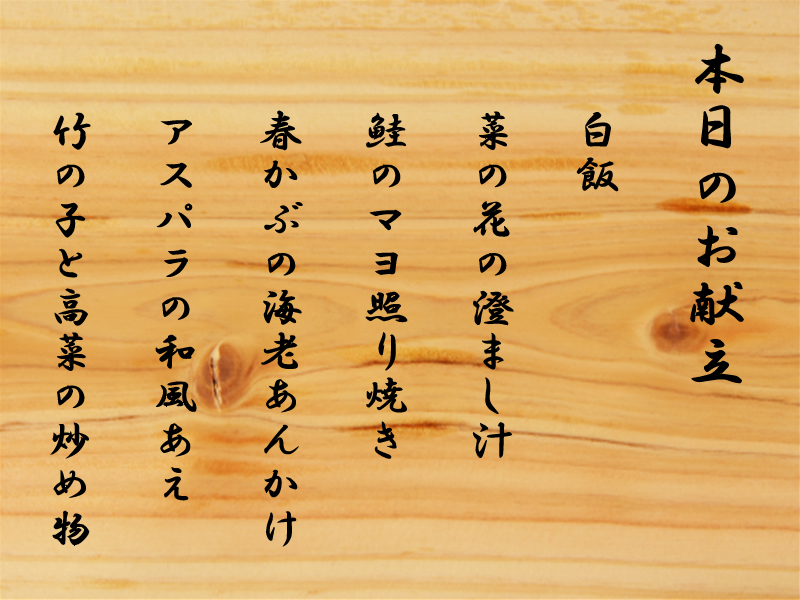 本日のお献立
白飯
菜の花の澄まし汁
鮭のマヨ照り焼き
春かぶの海老あんかけ
アスパラの和風あえ
竹の子と高菜の炒め物